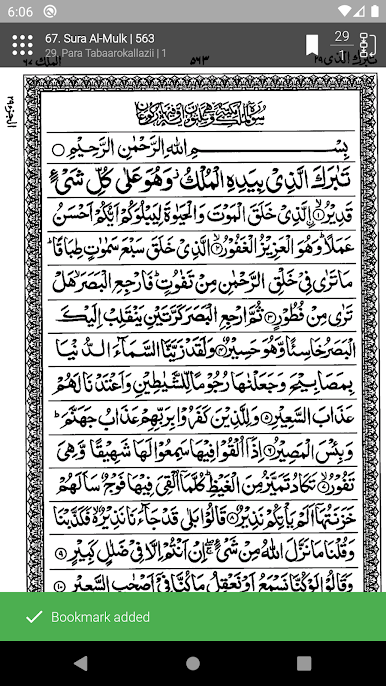 6:06
67. Sura Al-Mulk | 563
29. Para Tabaarokallazii | 1
29
1
تبرك الذى ٢٩
٥٦٣
الملك ٦٧
بِسْمِ اللهِ الرَّحْمٰنِ الرَّحِيْمِ
تَبٰرَكَ الَّذِىْ بِيَدِهِ الْمُلْكُ وَهُوَ عَلٰى كُلِّ شَىْءٍ
قَدِيْرُۨ ۙ﴿۱﴾ الَّذِىْ خَلَقَ الْمَوْتَ وَالْحَيٰوةَ لِيَبْلُوَكُمْ اَيُّكُمْ اَحْسَنُ
عَمَلًا ؕ وَهُوَ الْعَزِيْزُ الْغَفُوْرُ ۙ﴿۲﴾ الَّذِىْ خَلَقَ سَبْعَ سَمٰوٰتٍ طِبَاقًا ؕ
مَا تَرٰى فِىْ خَلْقِ الرَّحْمٰنِ مِنْ تَفٰوُتٍ ؕ فَارْجِعِ الْبَصَرَ ۙ هَلْ
تَرٰى مِنْ فُطُوْرٍ ﴿۳﴾ ثُمَّ ارْجِعِ الْبَصَرَ كَرَّتَيْنِ يَنْقَلِبْ اِلَيْكَ
الْبَصَرُ خَاسِئًا وَّهُوَ حَسِيْرٌ ﴿۴﴾ وَلَقَدْ زَيَّنَّا السَّمَآءَ الدُّنْيَا
بِمَصَابِيْحَ وَجَعَلْنٰهَا رُجُوْمًا لِّلشَّيٰطِيْنِ وَاَعْتَدْنَا لَهُمْ
عَذَابَ السَّعِيْرِ ﴿۵﴾ وَلِلَّذِيْنَ كَفَرُوْا بِرَبِّهِمْ عَذَابُ جَهَنَّمَ ؕ
وَبِئْسَ الْمَصِيْرُ ﴿۶﴾ اِذَآ اُلْقُوْا فِيْهَا سَمِعُوْا لَهَا شَهِيْقًا وَّهِىَ
تَفُوْرُ ۙ﴿۷﴾ تَكَادُ تَمَيَّزُ مِنَ الْغَيْظِ ؕ كُلَّمَآ اُلْقِىَ فِيْهَا فَوْجٌ سَاَلَهُمْ
خَزَنَتُهَآ اَلَمْ يَاْتِكُمْ نَذِيْرٌ ﴿۸﴾ قَالُوْا بَلٰى قَدْ جَآءَنَا نَذِيْرٌ ۙ فَكَذَّبْنَا
وَقُلْنَا مَا نَزَّلَ اللهُ مِنْ شَىْءٍ ۖ اِنْ اَنْتُمْ اِلَّا فِىْ ضَلٰلٍ كَبِيْرٍ ﴿۹﴾
وَقَالُوْا لَوْ كُنَّا نَسْمَعُ اَوْ نَعْقِلُ مَا كُنَّا فِىْٓ اَصْحٰبِ السَّعِيْرِ ﴿۱۰﴾
Bookmark added